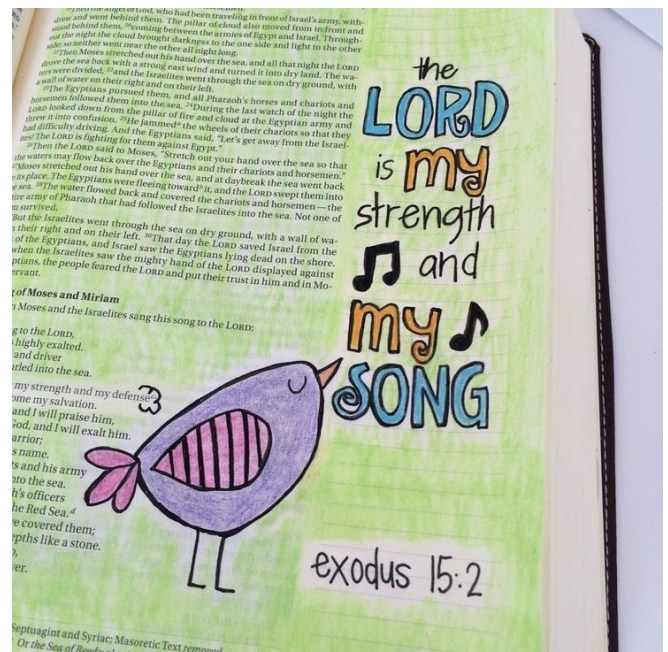 Then the angel of God, who had been traveling in front of Israel's army, with-
drew and went behind them. The pillar of cloud also moved from in front and
stood behind them, 20coming between the armies of Egypt and Israel. Through-
out the night the cloud brought darkness to the one side and light to the other
side; so neither went near the other all night long.
21Then Moses stretched out his hand over the sea, and all that night the LORD
drove the sea back with a strong east wind and turned it into dry land. The wa-
ters were divided, 22and the Israelites went through the sea on dry ground, with
a wall of water on their right and on their left.
23The Egyptians pursued them, and all Pharaoh's horses and chariots and
horsemen followed them into the sea. 24During the last watch of the night the
LORD looked down from the pillar of fire and cloud at the Egyptian army and
threw it into confusion. 25He jammed the wheels of their chariots so that they
had difficulty driving. And the Egyptians said, "Let's get away from the Israel-
ites! The LORD is fighting for them against Egypt."
26Then the LORD said to Moses, "Stretch out your hand over the sea so that
the waters may flow back over the Egyptians and their chariots and horsemen."
Moses stretched out his hand over the sea, and at daybreak the sea went back
its place. The Egyptians were fleeing toward it, and the LORD swept them into
e sea. 28The water flowed back and covered the chariots and horsemen—the
ire army of Pharaoh that had followed the Israelites into the sea. Not one of
m survived.
But the Israelites went through the sea on dry ground, with a wall of wa-
their right and on their left. 30That day the LORD saved Israel from the
of the Egyptians, and Israel saw the Egyptians lying dead on the shore.
when the Israelites saw the mighty hand of the LORD displayed against
ptians, the people feared the LORD and put their trust in him and in Mo-
ervant.
g of Moses and Miriam
Moses and the Israelites sang this song to the LORD:
g to the LORD,
highly exalted.
and driver
urled into the sea.
my strength and my defense
ome my salvation.
and I will praise him,
God, and I will exalt him.
arrior;
s name.
s and his army
nto the sea.
h's officers
he Red Sea.d
e covered them;
epths like a stone.
er.
Septuagint and Syriac; Masoretic Text removed
Or the Sea of Reeds
the
LORD
is my
strength
and
my
SONG
exodus 15:2